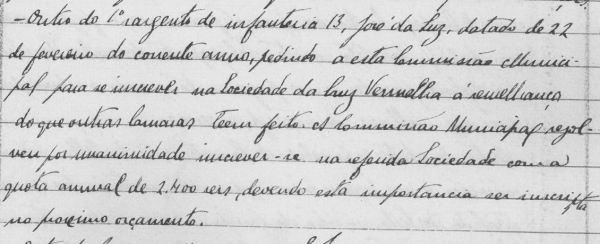 - Outro do 1º sargento de infanteria 13, José da Luz, datado de 22
de fevereiro do corrente anno, pedindo a esta Commissão Munici-
pal para se inscrever na Sociedade da Cruz Vermelha á semelhança
do que outras Camaras teem feito. A Commissão Municipal resol-
veu por unanimidade inscrever-se na referida Sociedade com a
quota annual de 2.400 reis, devendo esta importancia ser inscripta
no proximo orçamento.